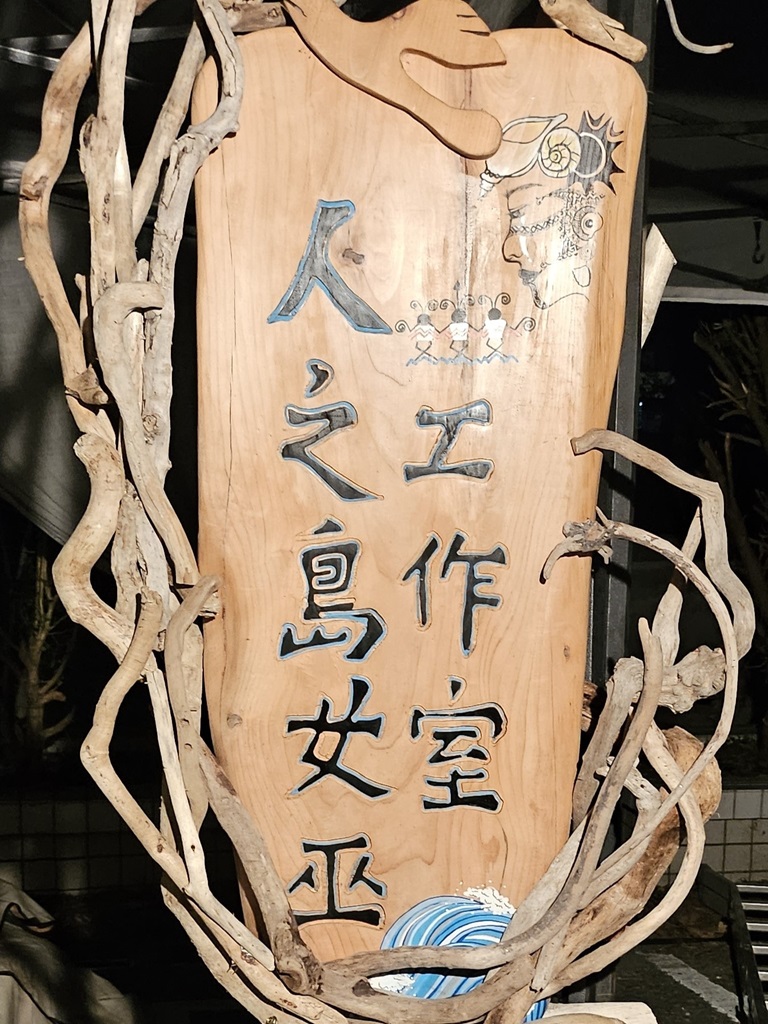 人之島女巫
工作室